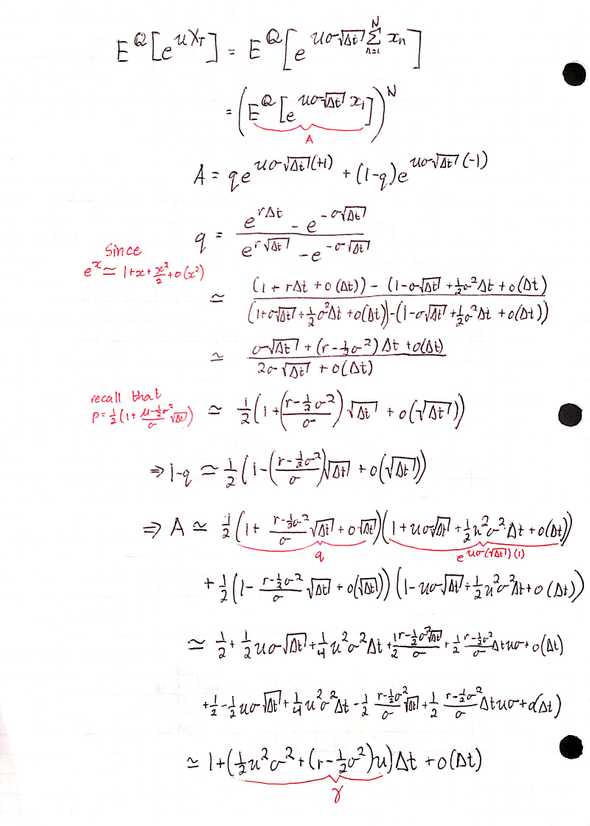 E^Q[e^{uX_T}] = E^Q[e^{uσ√Δt Σ_{n=1}^{N} x_n}]
= (E^Q[e^{uσ√Δt x_1}])^N
A
A = qe^{uσ√Δt(+1)} + (1-q)e^{uσ√Δt(-1)}
q = (e^{rΔt} - e^{-σ√Δt}) / (e^{r√Δt} - e^{-σ√Δt})
Since
e^x ≃ 1+x+x²/2+o(x²)
≃ ((1 + rΔt + o(Δt)) - (1-σ√Δt + ½σ²Δt + o(Δt)) / ((1+σ√Δt + ½σ²Δt + o(Δt)) - (1-σ√Δt + ½σ²Δt + o(Δt))
≃ (σ√Δt + (r-½σ²)Δt + o(Δt)) / (2σ√Δt + o(Δt))
recall that
p=½(1+ (μ-½σ²)/σ √Δt)
≃ ½(1+((r-½σ²)/σ)√Δt + o(√Δt))
⇒ 1-q ≃ ½(1-((r-½σ²)/σ)√Δt + o(√Δt))
⇒ A ≃ ½(1+ (r-½σ²)/σ √Δt + o√Δt)(1+uσ√Δt + ½u²σ²Δt + o(Δt))
q e^{uσ(√Δt)(1)}
+ ½(1- (r-½σ²)/σ √Δt + o(√Δt)) (1-uσ√Δt + ½u²σ²Δt + o(Δt))
≃ ½ + ½uσ√Δt + ¼u²σ²Δt + ½ (r-½σ²)/σ √Δt + ½ (r-½σ²)/σ Δtuσ + o(Δt)
+½ - ½uσ√Δt + ¼u²σ²Δt - ½ (r-½σ²)/σ √Δt + ½ (r-½σ²)/σ Δtuσ + o(Δt)
≃ 1+(½u²σ² + (r-½σ²)u)Δt + o(Δt)
γ